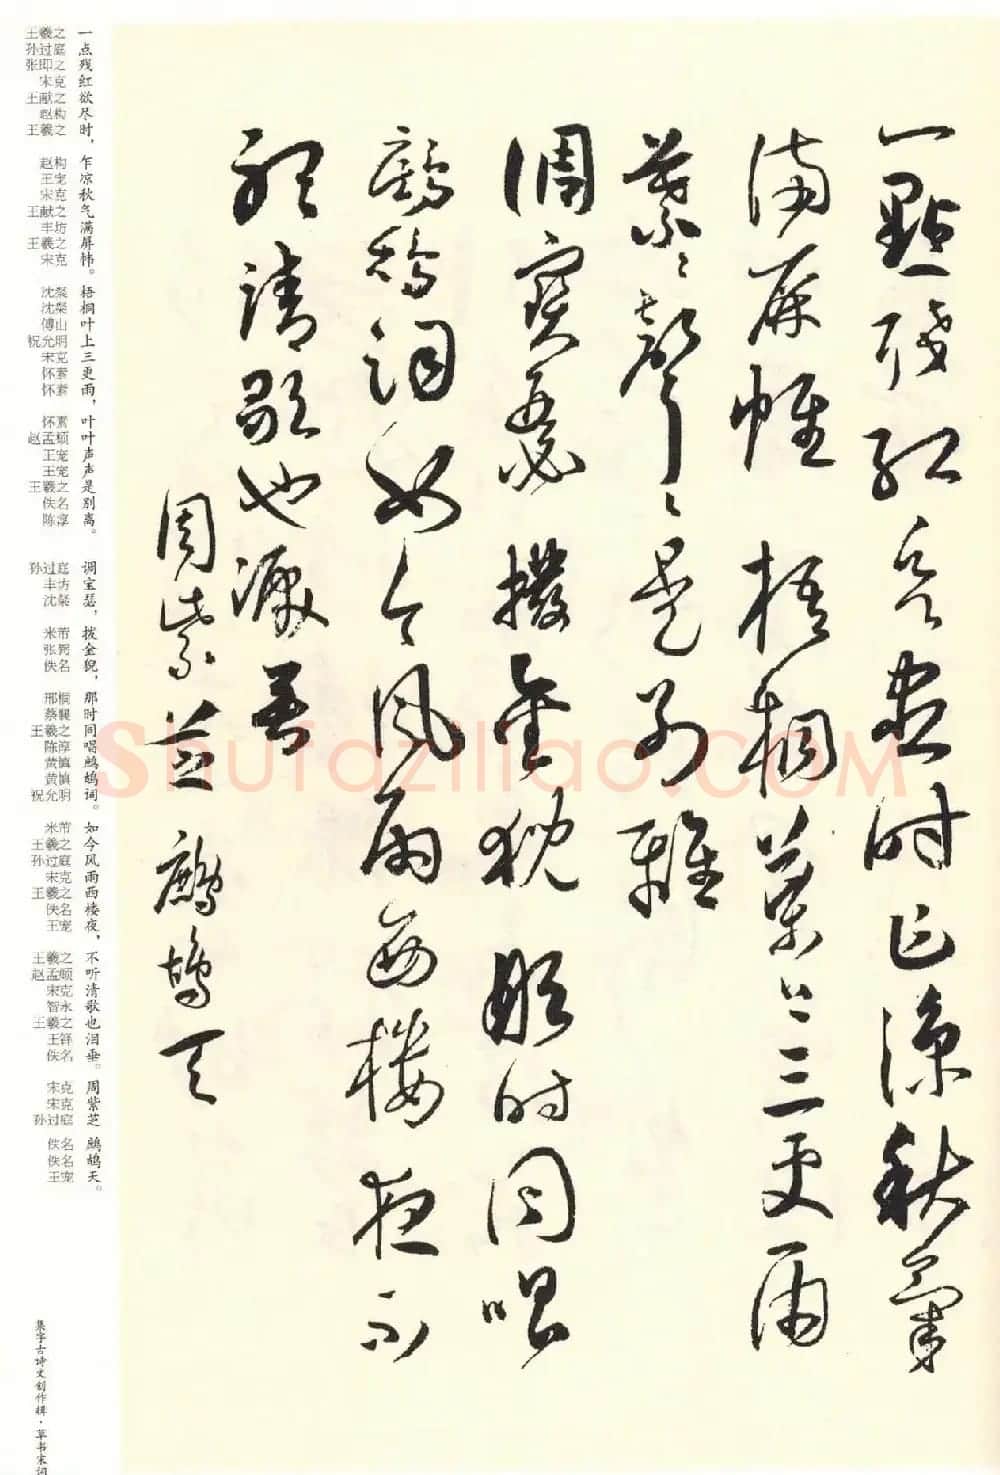 一點殘紅欲盡時乍涼秋氣
滿屏幃梧桐葉上三更雨
葉〻聲〻是別離
調寶瑟撥金猊那時同唱
鷓鴣詞如今風雨西樓夜不
聽清歌也淚垂
周紫芝鷓鴣天
一点残红欲尽时，乍凉秋气满屏帏。梧桐叶上三更雨，叶叶声声是别离。 调宝瑟，拨金猊，那时同唱鹧鸪词。如今风雨西楼夜，不听清歌也泪垂。 周紫芝 鹧鸪天。
王羲之 孙过庭 张即之 宋克 王献之 赵构 王羲之 赵构 王宠 宋克 王献之 丰坊 王羲之 宋克 沈粲 沈粲 傅山 祝允明 宋克 怀素 怀素 怀素 赵孟頫 王宠 王宠 王羲之 佚名 陈淳 孙过庭 丰坊 沈粲 米芾 张弼 佚名 邢侗 蔡襄 王羲之 陈淳 黄慎 黄慎 祝允明 米芾 王羲之 孙过庭 宋克 王羲之 佚名 王宠 王羲之 赵孟頫 宋克 智永 王羲之 王铎 佚名 宋克 宋克 孙过庭 佚名 佚名 王宠
集字古诗文创作辑·草书宋词
Shufaziliao.COM